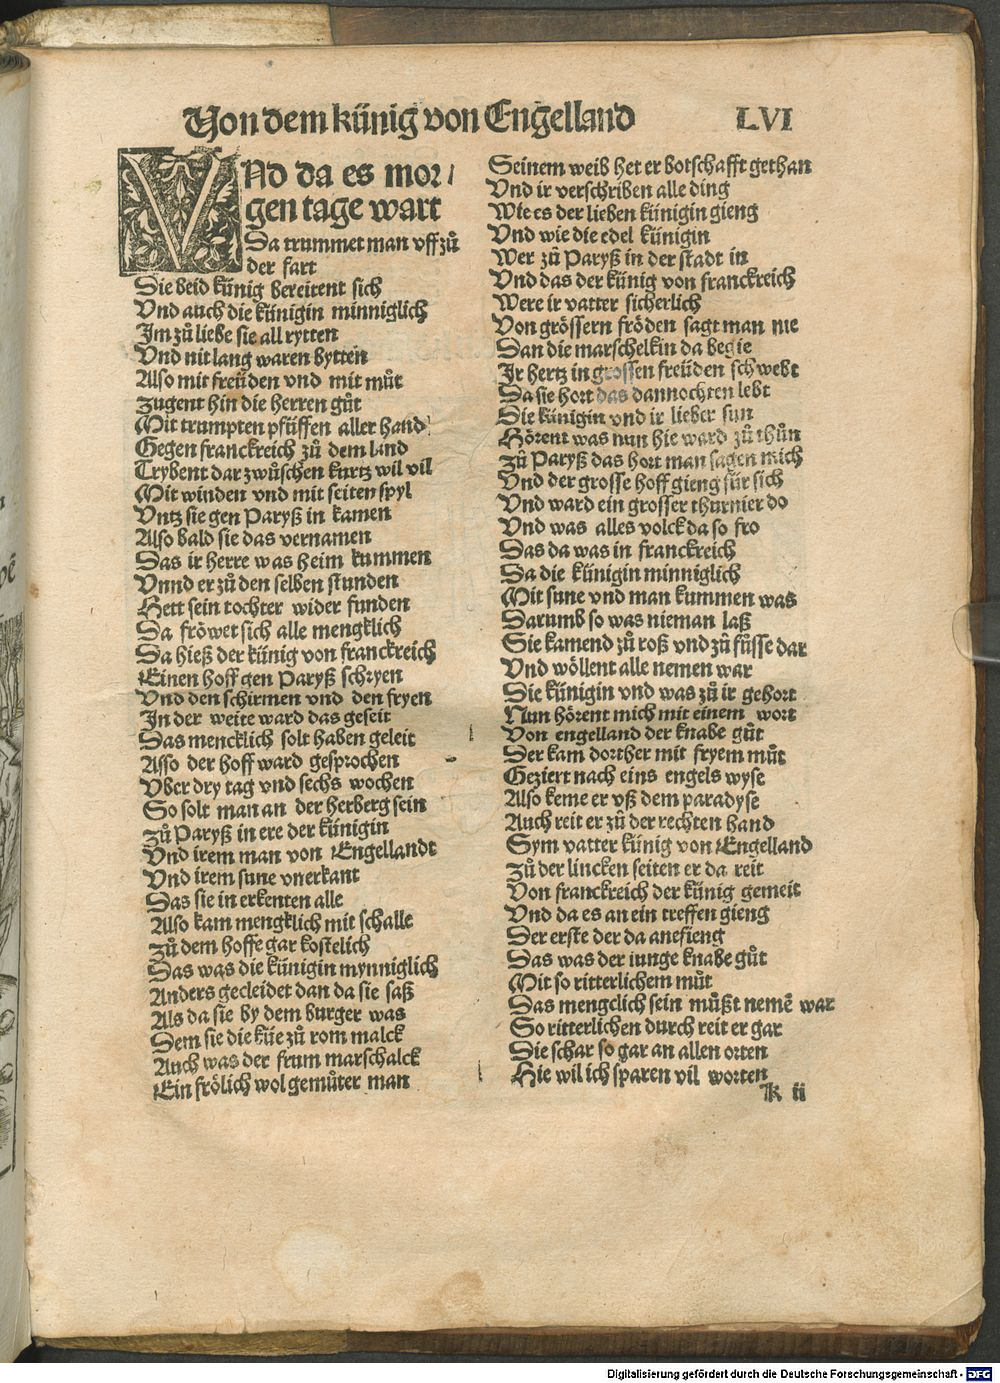 Von dem künig von Engelland LVI
VNd da es mor⸗
gen tage wart
Da trummet man vff zů
der fart
Die beid künig bereitent sich
Vnd auch die künigin minniglich
Im zů liebe sie all rytten
Vnd nit lang waren bytten
Also mit freüden vnd mit můt
Zugent hin die herren gůt
Mit trumpten pfüffen aller hand
Gegen franckreich zů dem land
Trybent dar zwüschen kurtz wil vil
Mit winden vnd mit seiten spyl
Vntz sie gen Paryß in kamen
Also bald sie das vernamen
Das ir herre was heim kummen
Vnnd er zů den selben stunden
Hett sein tochter wider funden
Da fröwet sich alle mengklich
Da hieß der künig von franckreich
Einen hoff gen Paryß schryen
Vnd den schirmen vnd den fryen
In der weite ward das geseit
Das mencklich solt haben geleit
Asso der hoff ward gesprochen
Vber dry tag vnd sechs wochen
So solt man an der herberg sein
zů Paryß in ere der künigin
Vnd irem man von Engellandt
Vnd irem sune vnerkant
Das sie in erkenten alle
Also kam mengklich mit schalle
zů dem hoffe gar kostelich
Das was die künigin mynniglich
Anders gecleidet dan da sie saß
Als da sie by dem burger was
Dem sie die küe zů rom malck
Auch was der frum marschalck
Ein frölich wol gemůter man
Seinem weib het er botschafft gethan
Vnd ir verschriben alle ding
Wie es der lieben künigin gieng
Vnd wie die edel künigin
Wer zů Paryß in der stadt in
Vnd das der künig von franckreich
Were ir vatter sicherlich
Von grössern fröden sagt man nie
Dan die marschelkin da begie
Ir hertz in grossen freüden schwebt
Da sie hort das dannochten lebt
Die künigin vnd ir lieber sun
Hörent was nun hie ward zů thůn
zů Paryß das hort man sagen mich
Vnd der grosse hoff gieng für sich
Vnd ward ein grosser thurnier do
Vnd was alles volck da so fro
Das da was in franckreich
Da die künigin minniglich
Mit sune vnd man kummen was
Darumb so was nieman laß
Sie kamend zů roß vnd zů fůsse dar
Vnd wöllent alle nemen war
Die künigin vnd was zů ir gehort
Nun hörent mich mit einem wort
Von engelland der knabe gůt
Der kam dorther mit fryem můt
Geziert nach eins engels wyse
Also keme er vß dem paradyse
Auch reit er zů der rechten hand
Sym vatter künig von Engelland
zů der lincken seiten er da reit
Von franckreich der künig gemeit
Vnd da es an ein treffen gieng
Der erste der da anefieng
Das was der iunge knabe gůt
Mit so ritterlichem můt
Das mengclich sein můßt nemē war
So ritterlichen durch reit er gar
Die schar so gar an allen orten
Hie wil ich sparen vil worten
K ii
Digitalisierung gefördert durch die Deutsche Forschungsgemeinschaft - DFG